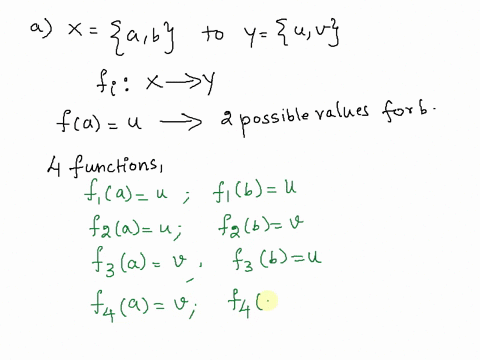 a) X = {a,b} to Y = {u,v}
fi : X → Y
f(a) = u → 2 possible values for b.
4 functions,
f1(a) = u ; f1(b) = u
f2(a) = u; f2(b) = v
f3(a) = v , f3(b) = u
f4(a) = v; f4(